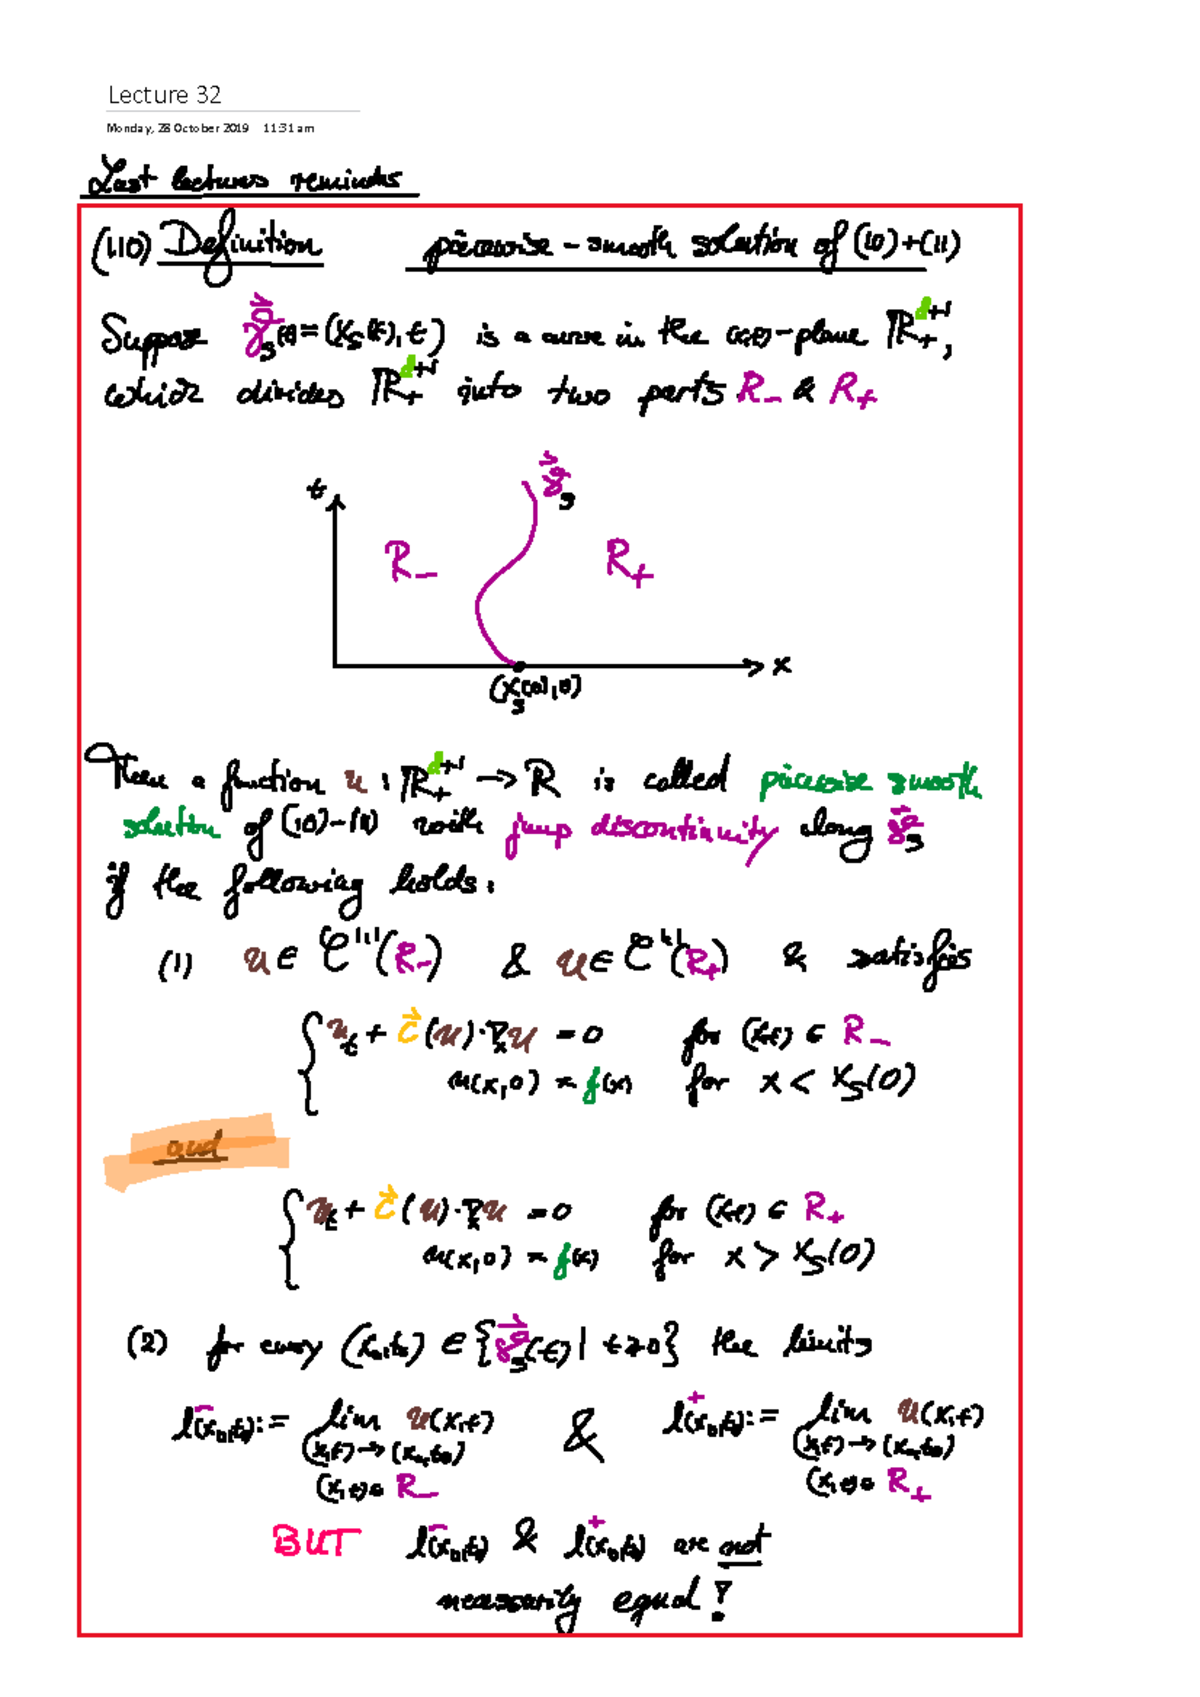 Lecture 32
Monday, 28 October 2019 11:31 am
Last lectures reminds
(1.10) Definition piecewise - smooth solution of (10)+(11)
Suppose γ⃗_s(t) = (x_s(t), t) is a curve in the (x,t)-plane ℝ₊^{d+1},
which divides ℝ₊^{d+1} into two parts R₋ & R₊
t γ⃗_s
R₋ R₊
x
(x_s(0),0)
Then a function u : ℝ₊^{d+1} → ℝ is called piecewise smooth
solution of (10)-(11) with jump discontinuity along γ⃗_s
if the following holds:
(1) u ∈ C^{(1)}(R₋) & u ∈ C^{(1)}(R₊) & satisfies
{ u_t + c⃗(u)·∇_x u = 0 for (x,t) ∈ R₋
u(x,0) = f(x) for x < x_s(0)
and
{ u_t + c⃗(u)·∇_x u = 0 for (x,t) ∈ R₊
u(x,0) = f(x) for x > x_s(0)
(2) for every (x₀,t₀) ∈ {γ⃗_s(t) | t ≥ 0} the limits
l⁻(x₀,t₀) := lim u(x,t) & l⁺(x₀,t₀) := lim u(x,t)
(x,t)→(x₀,t₀) (x,t)→(x₀,t₀)
(x,t)∈ R₋ (x,t)∈ R₊
BUT l⁻(x₀,t₀) & l⁺(x₀,t₀) are not
necessarily equal!